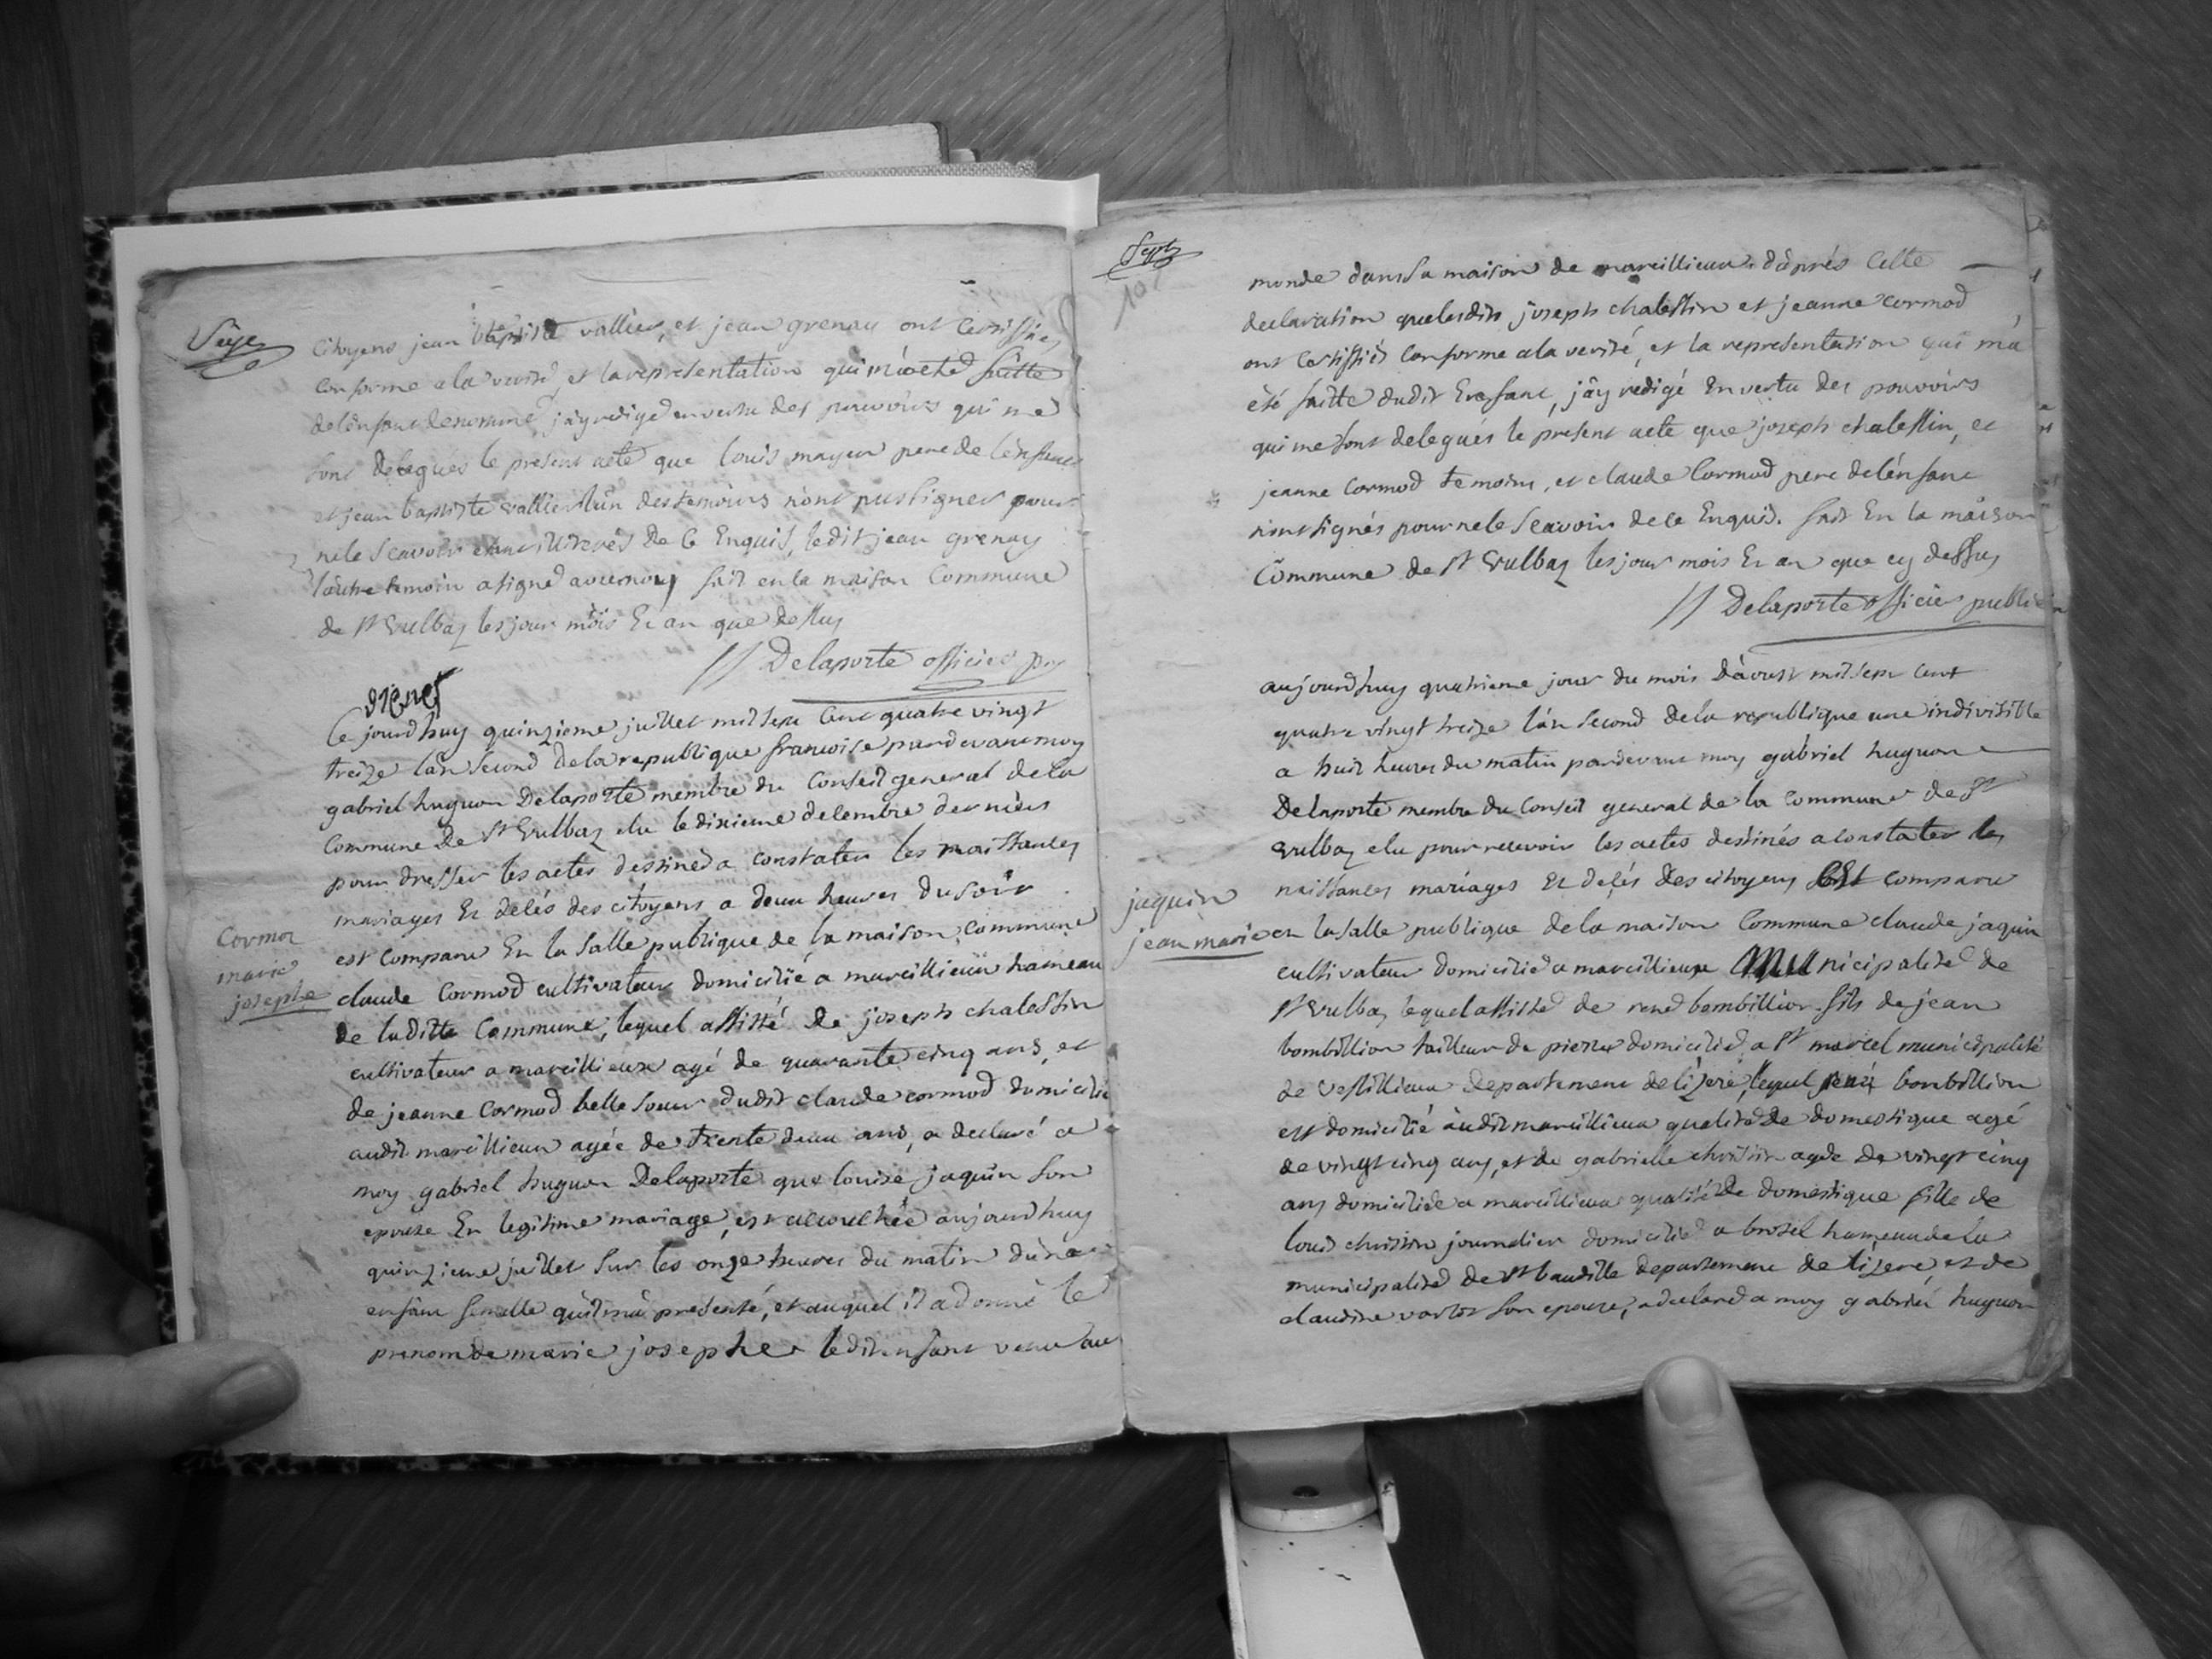 Seize
citoyens jean baptiste vallier, et jean grenay ont certiffiés
conforme a la verité et la representation qui m'a eté faitte
de l'enfant denommé j'ay redigé en vertu des pouvoirs qui me
sont delegués le present acte que louis mayeu pere de l'enfant
et jean baptiste vallier l'un des temoins n'ont pu signer pour
ne le scavoir etant illiterés de ce Enquis, ledit jean grenay
l'autre temoin a signé avec moy fait en la maison Commune
de St Vulbaz les jour mois Et an que dessus
// Delaporte officier
Ce jourd'huy quinzieme juillet mil sept Cent quatre vingt
treize l'an second de la republique francoise pardevant moy
gabriel huguon Delaporte membre du Conseil general de la
Commune de St Vulbaz elu le dixieme decembre dernier
pour dresser les actes destinés a constater les naissances
mariages Et décés des citoyens a deux heures du soir
est comparu En la salle publique de la maison Commune
Cormoz
marie
josephe
claude Cormod cultivateur domicilié a marcillieux hameau
de laditte Commune, lequel assisté de joseph chalessin
cultivateur a marcillieux agé de quarante cinq ans, et
de jeanne Cormod belle soeur dudit claude cormod domicilié
audit marcillieux agée de trente deux ans, a declaré a
moy gabriel huguon Delaporte que louise jaquin son
epouse En legitime mariage, est accouchée aujourd'huy
quinzieme juillet sur les onze heures du matin d'une
enfant femelle qu'il m'a presenté, et auquel il a donné le
prenom de marie josephe ledit enfant venu au
Sept
10
monde dans sa maison de marcillieux d'aprés Cette
declaration que lesdits joseph chalessin et jeanne cormod
ont Certiffiés conforme a la verité, et la representation qui m'a
été faitte dudit Enfant, j'ay redigé En vertu des pouvoirs
qui me sont delegués le present acte que joseph chalessin, et
jeanne Cormod temoins, et claude Cormod pere de l'enfant
n'ont signés pour ne le scavoir de ce Enquis. fait En la maison
Commune de St Vulbaz les jour mois Et an que cy dessus
// Delaporte officier public
aujourd'huy quatrieme jour du mois d'aoust mil sept Cent
quatre vingt treize l'an second de la republique une indivisible
a huit heures du matin pardevant moy gabriel huguon
Delaporte membre du Conseil general de la Commune de St
Vulbaz elu pour recevoir les actes destinés a constater les
naissances mariages Et décés des citoyens Est comparu
jaquin
jean marie
en la salle publique de la maison Commune claude jaquin
cultivateur domicilié a marcillieux Municipalité de
St Vulbaz lequel assisté de rené bombillion fils de jean
bombillion tailleur de pierre domicilié a St marcel municipalité
de Vessillieux departement de l'izere, lequel rené bombillion
est domicilié audit marcillieux qualité de domestique agé
de vingt cinq ans, et de gabrielle christin agée de vingt cinq
ans domiciliée a marcillieux qualité de domestique fille de
louis christin journalier domicilié a brosel hameau de la
municipalité de St baudille departement de l'izere et de
claudine varlot son epouse, a declaré a moy gabriel huguon